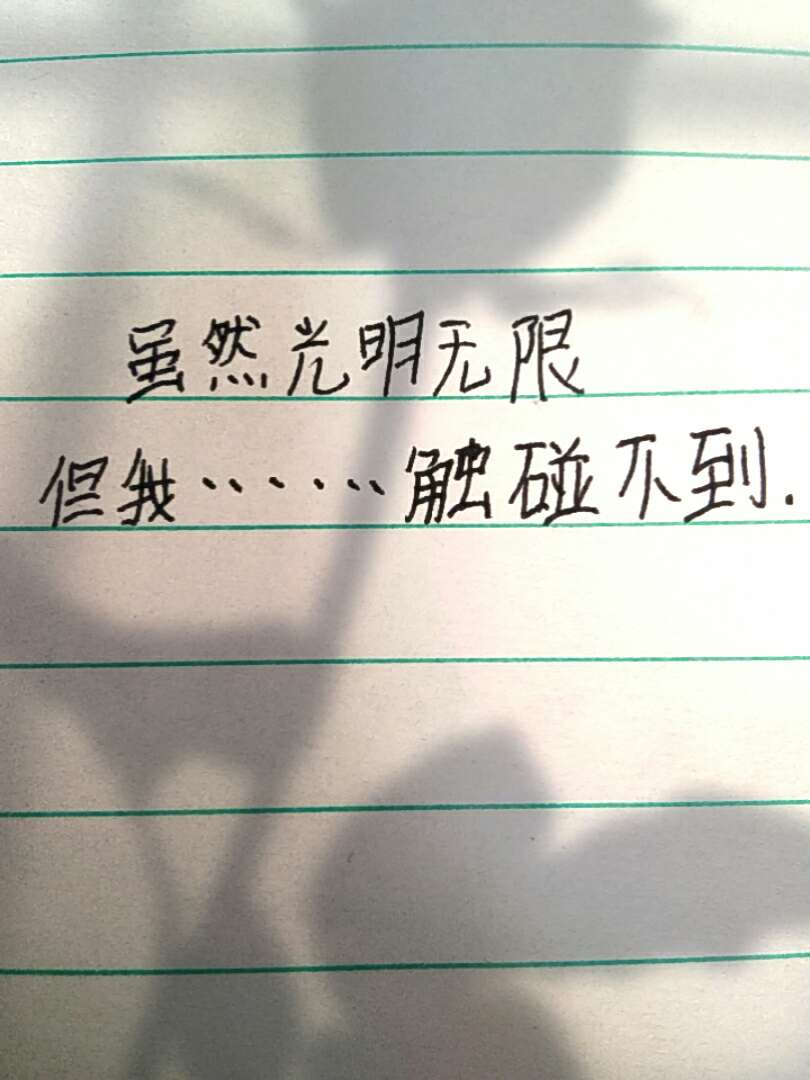 虽然光明无限
但我……触碰不到.